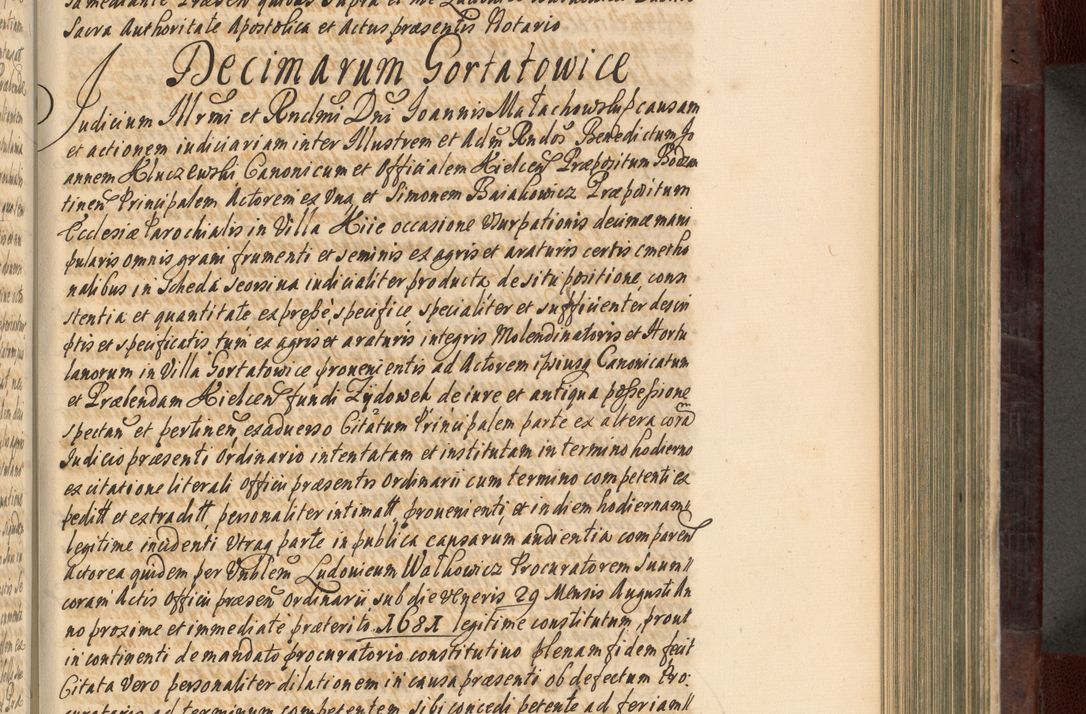 Sacra Authoritate Apostolica et Actus præsentis Notario
Decimarum Gortatowice
Iudicium Illrmi et Rndmi Dni Ioannis Małachowsky causam
et actionem iudiciariam inter Illustrem et Adm Rndos Benedictum Jo
annem Kluczewski Canonicum et Officialem Kielcen Præpositum Bodzen
tinen Principalem Actorem ex Vna, et Simonem Baiakowicz Præpositum
Ecclesiæ Parochialis in Villa Kiie occasione Vsurpationis decimæ mani
pularis omnis grani frumenti et seminis ex agris et araturis certis cmetho
nalibus in Scheda seorsiva iudicialiter producta, de situ positione, consi
stentia et quantitate expresse, specifice specialiter et sufficienter descri
ptis et specificatis tum ex agris et araturis integris Molendinatoris et Hortu
lanorum in Villa Gortatowice provenientis ad Actorem ipsiusq Canonicatum
et Præbendam Kielcen fundi Zydowek de iure et antiqua possessione
spectan et pertinen ex adverso Citatum Principalem parte ex altera coram
Iudicio præsenti Ordinario intentatam et institutam in termino hodierno
ex citatione literali Officii præsentis Ordinarii cum termino competenti ex
peditt et extraditt, personaliter intimatt provenienti, et in diem hodiernam
legitime incidenti Vtraq parte in publica causarum audientia comparen
Actorea quidem per Vnblem Ludovicum Wałkowicz Procuratorem Suum
coram Actis Officii præsen Ordinarii sub die Veneris 29 Mensis Augusti An
no proxime et immediate præterito 1681 legitime constitutum, prout
in continenti de mandato procuratorio constitutivo plenam fidem fecit
Citata Vero personaliter dilationem in causa præsenti ob defectum Pro-
curatoris ad terminum competentem sibi concedi petente ad feriam